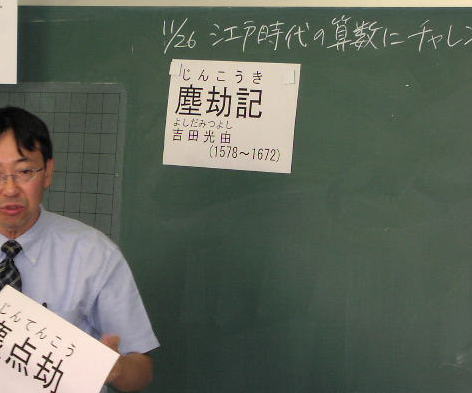 11/26 江戸時代の算数にチャレン
じんこうき
塵劫記
よしだみつよし
吉田光由
(1578〜1672)
じんてんこう
塵点劫